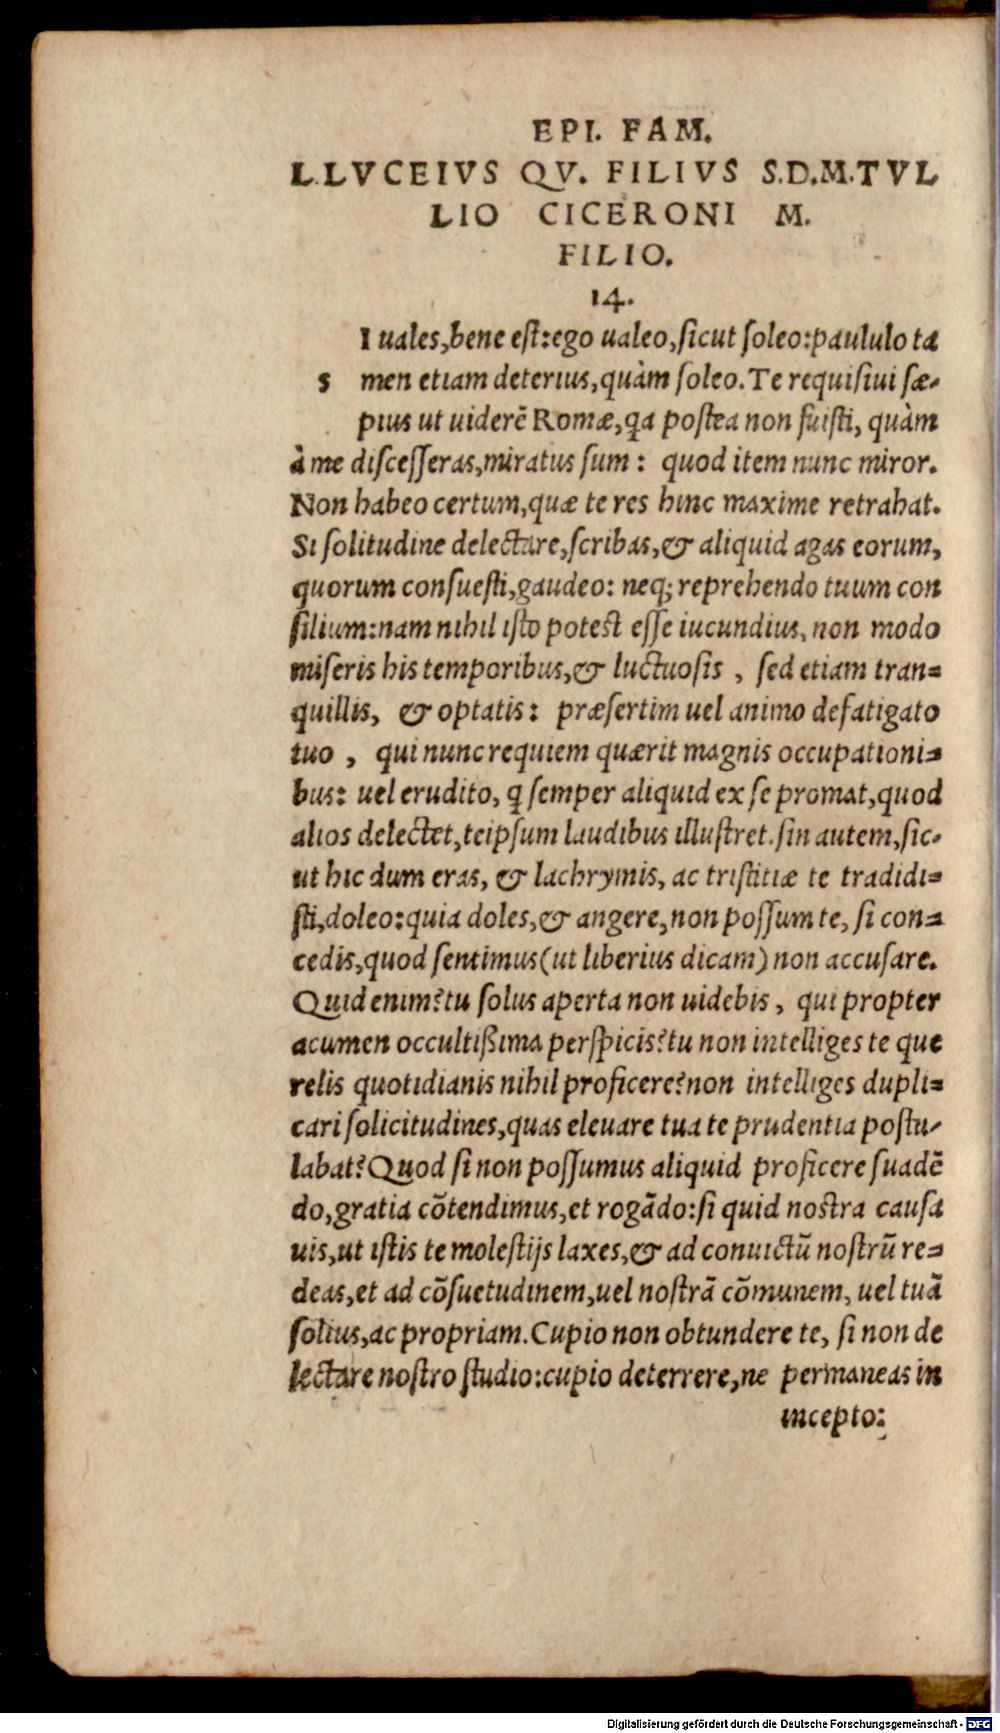 EPI. FAM.
L.LVCEIVS QV. FILIVS S.D.M.TVL
LIO CICERONI M.
FILIO.
14.
I uales,bene eſt:ego ualeo,ſicut ſoleo:paululo ta
s men etiam deterius,quàm ſoleo.Te requiſiui ſæ-
pius ut uiderē Romæ,qa poſtea non fuiſti, quàm
à me diſceſſeras,miratus ſum: quod item nunc miror.
Non habeo certum,quæ te res hinc maxime retrahat.
Si ſolitudine delectare,ſcribas,& aliquid agas eorum,
quorum conſueſti,gaudeo: neq; reprehendo tuum con
ſilium:nam nihil iſto poteſt eſſe iucundius, non modo
miſeris his temporibus,& luctuoſis , ſed etiam tran=
quillis, & optatis: præſertim uel animo defatigato
tuo , qui nunc requiem quærit magnis occupationi=
bus: uel erudito, q ſemper aliquid ex ſe promat,quod
alios delectet,teipſum laudibus illuſtret.ſin autem,ſic-
ut hic dum eras, & lachrymis, ac triſtitiæ te tradidi=
ſti,doleo:quia doles,& angere,non poſſum te, ſi con=
cedis,quod ſentimus(ut liberius dicam) non accuſare.
Quid enim?tu ſolus aperta non uidebis, qui propter
acumen occultißima perſpicis?tu non intelliges te que
relis quotidianis nihil proficere?non intelliges dupli=
cari ſolicitudines,quas eleuare tua te prudentia poſtu-
labat?Quod ſi non poſſumus aliquid proficere ſuadē
do,gratia cōtendimus,et rogādo:ſi quid noſtra cauſa
uis,ut iſtis te moleſtijs laxes,& ad conuictū noſtrū re=
deas,et ad cōſuetudinem,uel noſtrā cōmunem, uel tuā
ſolius,ac propriam.Cupio non obtundere te, ſi non de
lectare noſtro ſtudio:cupio deterrere,ne permaneas in
incepto:
Digitalisierung gefördert durch die Deutsche Forschungsgemeinschaft - DFG